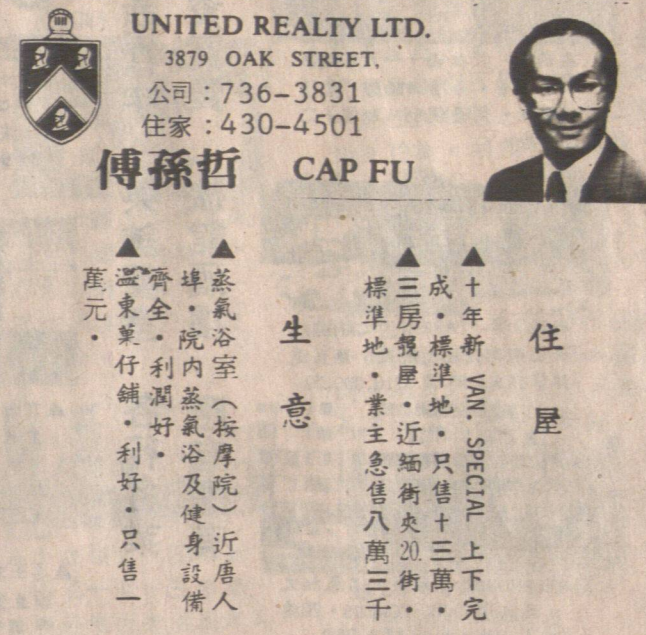 UNITED REALTY LTD.
3879 OAK STREET,
公司：736-3831
住家：430-4501
傅孫哲 CAP FU
住屋
▲十年新 VAN. SPECIAL 上下完
成·標準地·只售十三萬·
▲三房報屋·近緬街夾20.街·
標準地·業主急售八萬三千
生意
▲蒸氣浴室（按摩院）近唐人
埠·院內蒸氣浴及健身設備
齊全·利潤好·
▲溫東菓仔舖·利好·只售一
萬元·